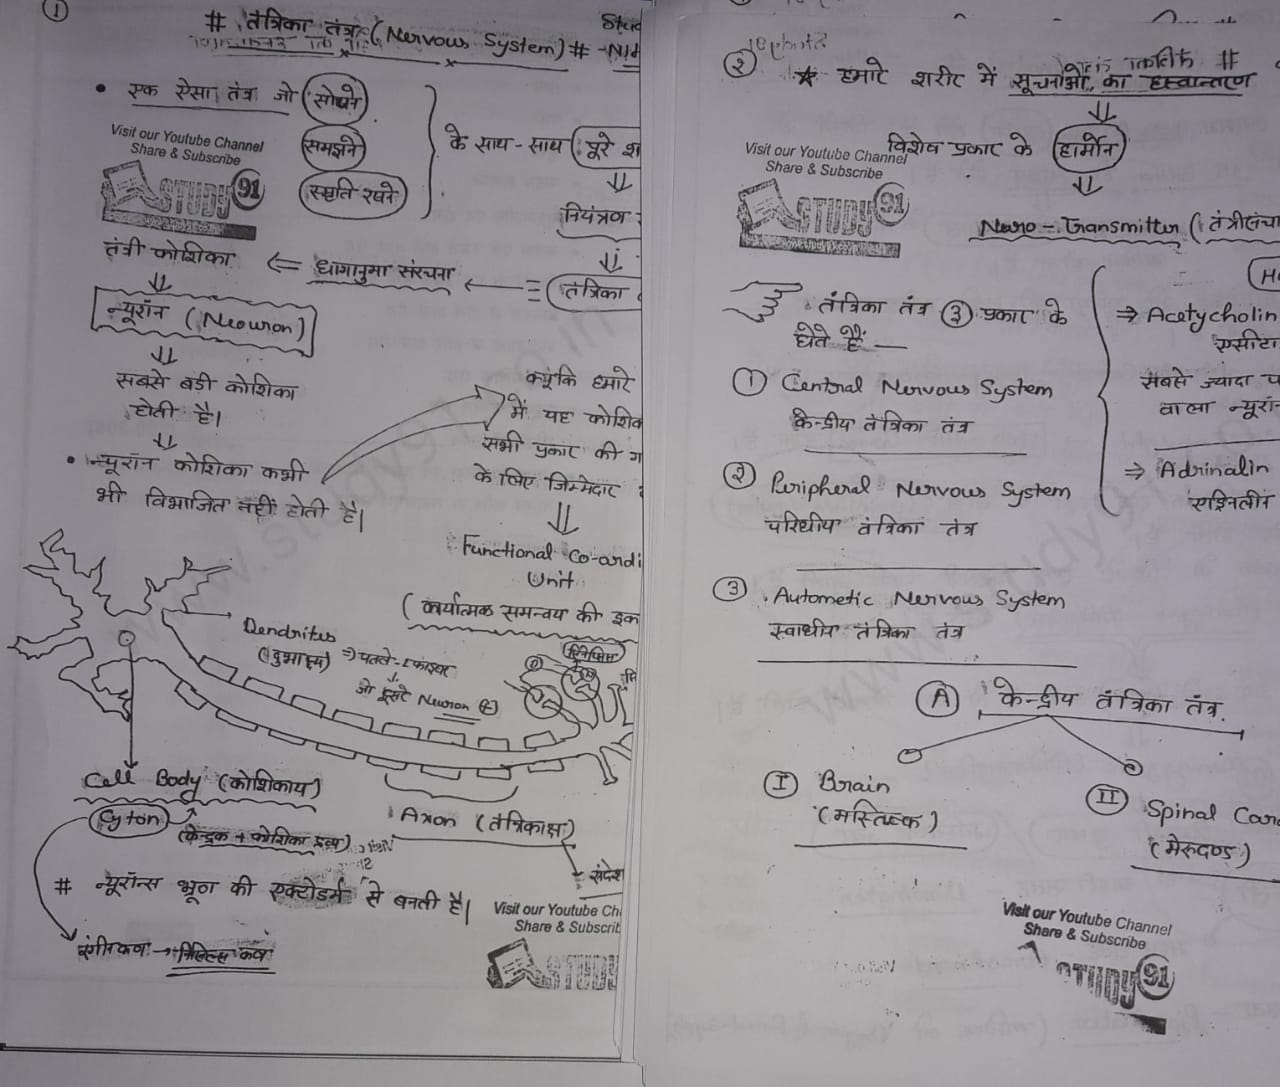 ①
# तंत्रिका तंत्र (Nervous System) #
• एक ऐसा तंत्र जो सोचने
समझने
स्मृति रखने
के साथ-साथ पूरे
Visit our Youtube Channel
Share & Subscribe
STUDY 91
नियंत्रण
तंत्रिका
धागानुमा संरचना
तंत्री कोशिका
न्यूरॉन (Neuron)
सबसे बडी कोशिका
होती है।
• न्यूरॉन कोशिका कभी
भी विभाजित नहीं होती है।
क्यूंकि हमारे
में यह
सभी प्रकार की
के लिए जिम्मेदार
Functional Co-ordi
Unit
(कार्यात्मक समन्वय की इक
Dendrites
(दुमाक्ष्य) ⇒ पतले-2 फाइबर
जो दूसरे Neuron से
Cell Body (कोशिकाय)
Cyton
(केन्द्रक + कोशिका द्रव्य)
Axon (तंत्रिकाक्ष)
संदेश
# न्यूरॉन्स भ्रूण की एक्टोडर्म से बनती है।
→ निसिल्स कण
Visit our Youtube Ch
Share & Subscrib
STUDY
②
★ हमारे शरीर में सूचनाओं का हस्तान्तरण
विशेष प्रकार के हार्मोन
Visit our Youtube Channel
Share & Subscribe
STUDY 91
Neuro-Transmitter (तंत्रीसंचा
तंत्रिका तंत्र ③ प्रकार के
होते हैं —
⇒ Acetycholin
एसीटा
सबसे ज्यादा
वाला न्यूरॉन
⇒ Adrinalin
एड्रिनलीन
① Central Nervous System
केन्द्रीय तंत्रिका तंत्र
② Peripheral Nervous System
परिधीय तंत्रिका तंत्र
③ Autometic Nervous System
स्वाधीन तंत्रिका तंत्र
Ⓐ केन्द्रीय तंत्रिका तंत्र
Ⅰ Brain
(मस्तिष्क)
Ⅱ Spinal Card
(मेरूदण्ड)
Visit our Youtube Channel
Share & Subscribe
STUDY 91